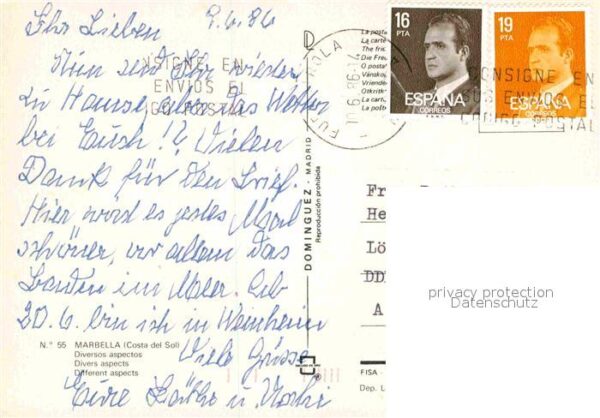 Ihr Lieben 9.6.86
Nun seid Ihr wieder
zu Hause, aber das Wetter
bei Euch!? Vielen
Dank für den Brief.
Hier wird es jedes Mal
schöner, vor allem das
Baden im Meer. Am
20.6. bin ich in Weinheim
Viele Grüsse
Eure
N.º 55 MARBELLA (Costa del Sol)
Diversos aspectos
Divers aspects
Different aspects
DOMINGUEZ - MADRID
Reproducción prohibida
La carte
The frie
Die Freu
O posta
Vänskap
La carto
NSIGNE EN
ENVIOS EL
GO POSTAL
FUENGIROLA
10.6.86
16
PTA
ESPAÑA
CORREOS
19
PTA
ESPAÑA
CORREOS
CONSIGNE EN
SUS ENVIOS EL
CODIGO POSTAL
Fr
He
Lö
DD
A
privacy protection
Datenschutz
FISA
Dep. L